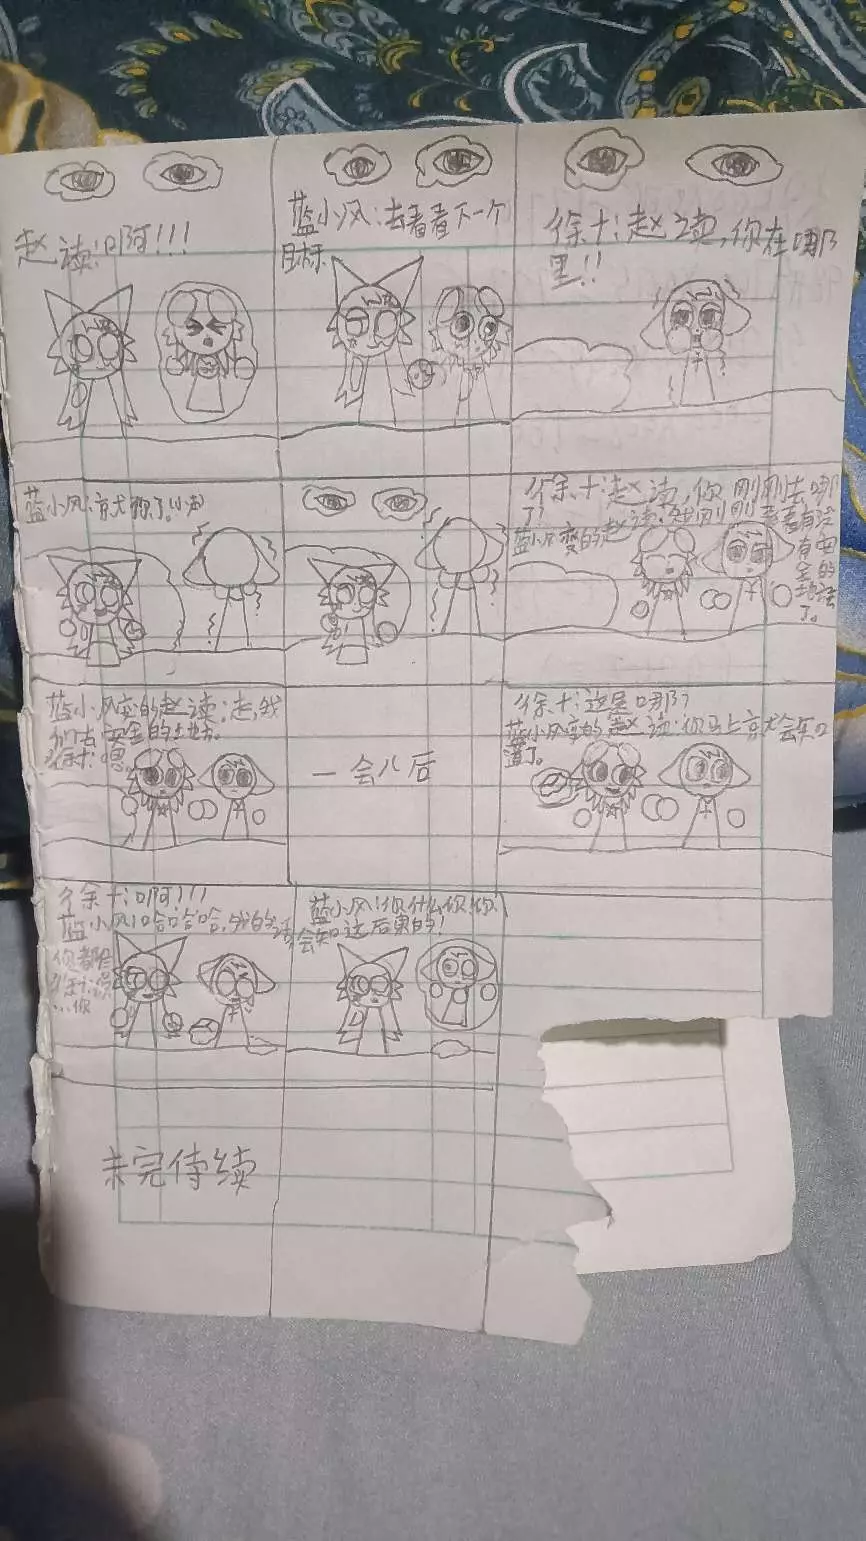 赵读:啊!!!
蓝小风:去看看下一个
目标
徐十:赵读,你在哪
里!!
蓝小风:京尤你了。小声
徐十:赵读,你刚刚去哪
了!
蓝小风变的赵读:我刚刚看看有没
有安
全的
了。
蓝小风变的赵读:走,我
们去安全的土也方。
徐十:嗯
一会儿后
徐十:这是哪?
蓝小风变的赵读:你马上京尤会知
道了。
徐十:啊!!!
蓝小风:哈哈哈,我的话
你都信
徐十:
...你
蓝小风:你什么你!你
会知道后果的!
未完待续